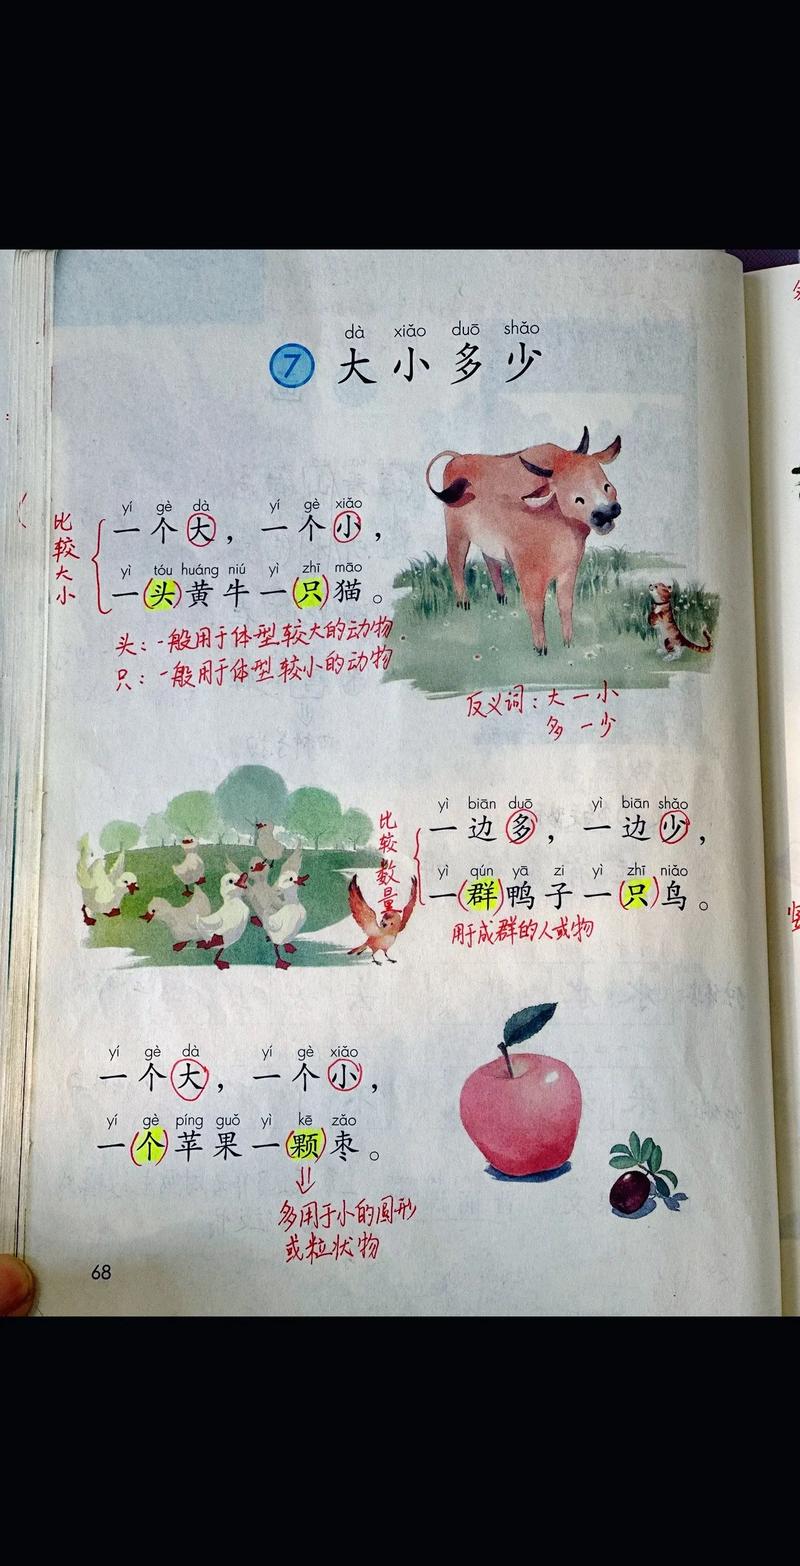 dà xiǎo duō shǎo
7 大小多少
比较大小
yí gè dà yí gè xiǎo
一个大，一个小，
yì tóu huáng niú yì zhī māo
一头黄牛一只猫。
头：一般用于体型较大的动物
只：一般用于体型较小的动物
反义词：大—小
多—少
比较数量
yì biān duō yì biān shǎo
一边多，一边少，
yì qún yā zi yì zhī niǎo
一群鸭子一只鸟。
用于成群的人或物
yí gè dà yí gè xiǎo
一个大，一个小，
yí gè píng guǒ yì kē zǎo
一个苹果一颗枣。
多用于小的圆形
或粒状物
68